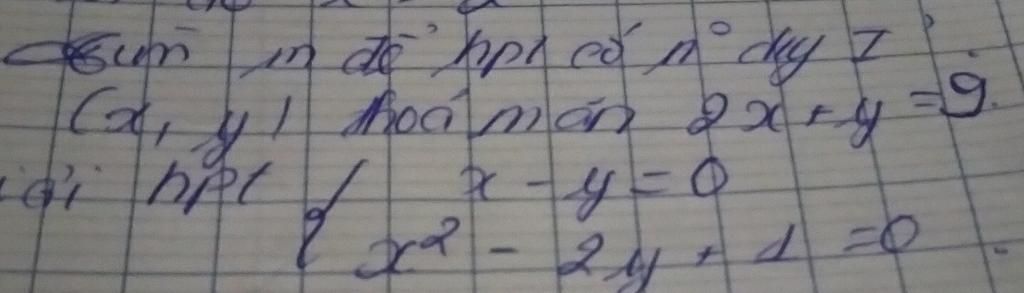 m để hpt có n° duy I
(x, y) thoả mãn 2x + y = 9.
hpt { x - y = 0
x² - 2y + 1 = 0